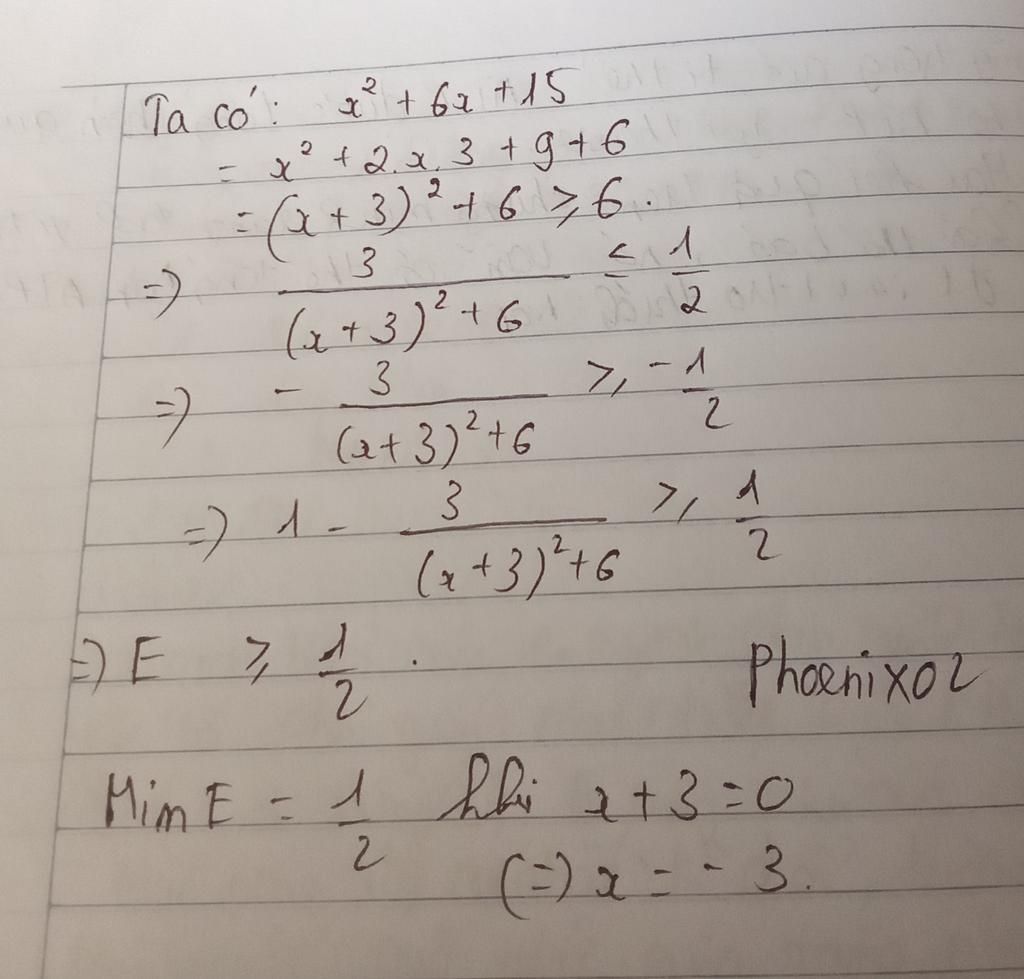 Ta có: x² + 6x + 15
= x² + 2.x.3 + 9 + 6
= (x + 3)² + 6 ⩾ 6.
=> 3/((x + 3)² + 6) ≤ 1/2
=> - 3/((x + 3)² + 6) ⩾ -1/2
=> 1 - 3/((x + 3)² + 6) ⩾ 1/2
=> E ⩾ 1/2.
Phoenix02
Min E = 1/2 khi x + 3 = 0
(=) x = - 3.